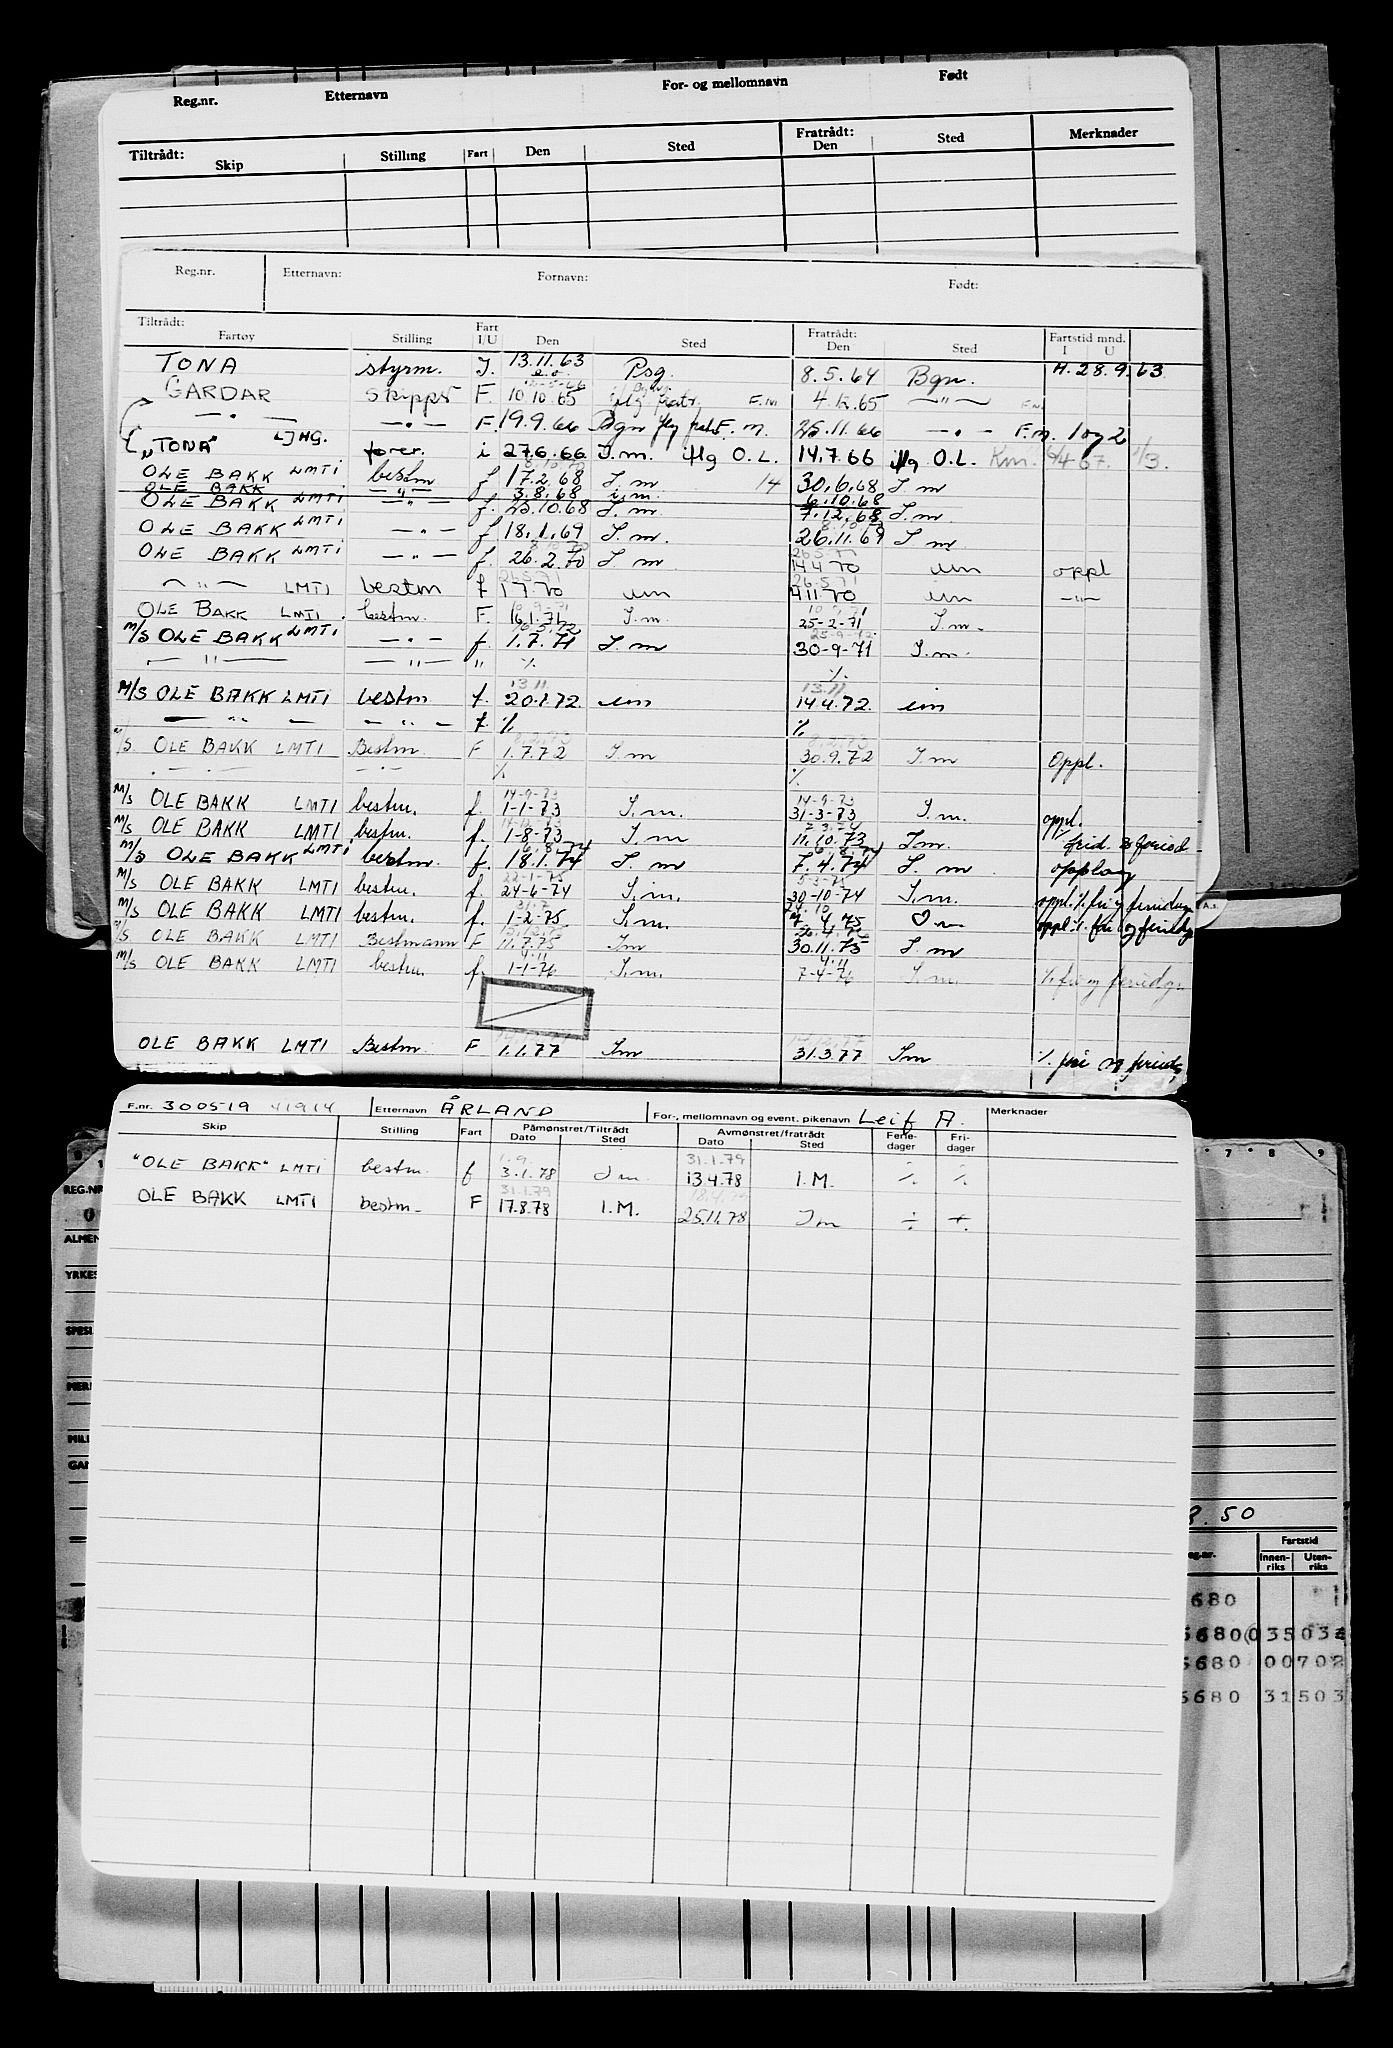 Reg.nr. Etternavn For- og mellomnavn Født
Tiltrådt: Skip Stilling Fart Den Sted Fratrådt: Den Sted Merknader
Reg.nr. Etternavn: Fornavn: Født:
Tiltrådt: Fartøy Stilling Fart I/U Den Sted Fratrådt: Den Sted Fartstid mnd. I U
TONA styrm. I. 13.11.63 Bgn. 8.5.64 Bgn. H. 28.9.63
GARDAR Skipper F. 10 10.65 F.M 4.12.65 —"— F.M.
—"— LJHG. —"— F. 19.9.66 Bgn F.M. 25.11.66 —"— F.M. 1 og 2
"TONA" fører. i 27.6.66 I.m. iflg O.L. 14.7.66 iflg O.L.
OLE BAKK LMTI bestm f 17.2.68 I.m 14 30.6.68 I.m
OLE BAKK —"— 3.8.68 i.m. 6.10.68
OLE BAKK LMTI —"— f. 23.10.68 I.m. 7.12.68 I.m
OLE BAKK LMTI —"— f 18.1.69 I.m. 26.11.69 I m
OLE BAKK LMTI —"— f. 26.2.70 I m 14 4 70 im oppl
—"— LMTI bestm f 1 7 70 im 4 11 70 im —"—
OLE BAKK LMTI. bestm. F. 16.1.71 I.m. 25-2-71 I.m.
M/S OLE BAKK LMTI —"— f. 1.7.71 I.m 30-9-71 I.m.
—"— —"— " ⁒ ⁒
13.11 13.11
M/S OLE BAKK LMTI bestm f. 20.1.72 im 14.4.72 im
—"— —"— f. ⁒ ⁒
M/S. OLE BAKK LMTI Bestm. F 1.7.72 I.m 30.9.72 I.m Oppl.
—"— —"— ⁒ ⁒
14-9-73 14-9-73
M/S OLE BAKK LMTI bestm. f. 1-1-73 I.m. 31-3-73 I.m. oppl.
M/S OLE BAKK LMTI bestm. f. 1-8-73 I.m 11.10.73 I.m.
M/S OLE BAKK LMTI bestm. f. 18.1.74 I.m 7.4.74 I.m opplag
M/S OLE BAKK LMTI bestm. f. 24-6-74 I.m. 30-10-74 I.m. oppl. ⁒ fri og feriedgr
M/S OLE BAKK LMTI bestm. f. 1-2-75 I.m. 7 4 75 oppl. ⁒ fri og feriedgr
M/S OLE BAKK LMTI Bestmann F 11.7.75 Im 30.11.75 I.m
4.11 4.11
M/S OLE BAKK LMTI bestm. f. 1-1-76 I.m. 7-4-76 I.m. ⁒ fri og feriedgr
OLE BAKK LMTI Bestm. F 1.1.77 Im 31.3.77 Im ⁒ fri og feriedg
F.nr. 300519 41914 Etternavn ÅRLAND For-, mellomnavn og event. pikenavn Leif A. Merknader
Skip Stilling Fart Påmønstret/Tiltrådt Dato Sted Avmønstret/fratrådt Dato Sted Ferie-dager Fri-dager
1.9. 31.1.79
"OLE BAKK" LMTI bestm. f 3.1.78 Im 13.4.78 I.M. ⁒ ⁒
31.1.79
OLE BAKK LMTI bestm. F 17.8.78 I.M. 25.11.78 Im ÷ ÷
REG.NR
ALMEN
YRKES
SPESI
MERI
MILI
7 8 9
.50
Fartstid
Innen-riks Uten-riks
680
6800 3503
5680 00702
5680 31503